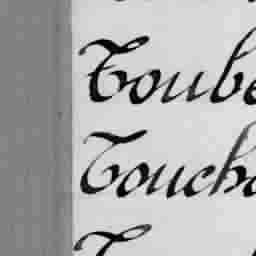 Toube
Toucha